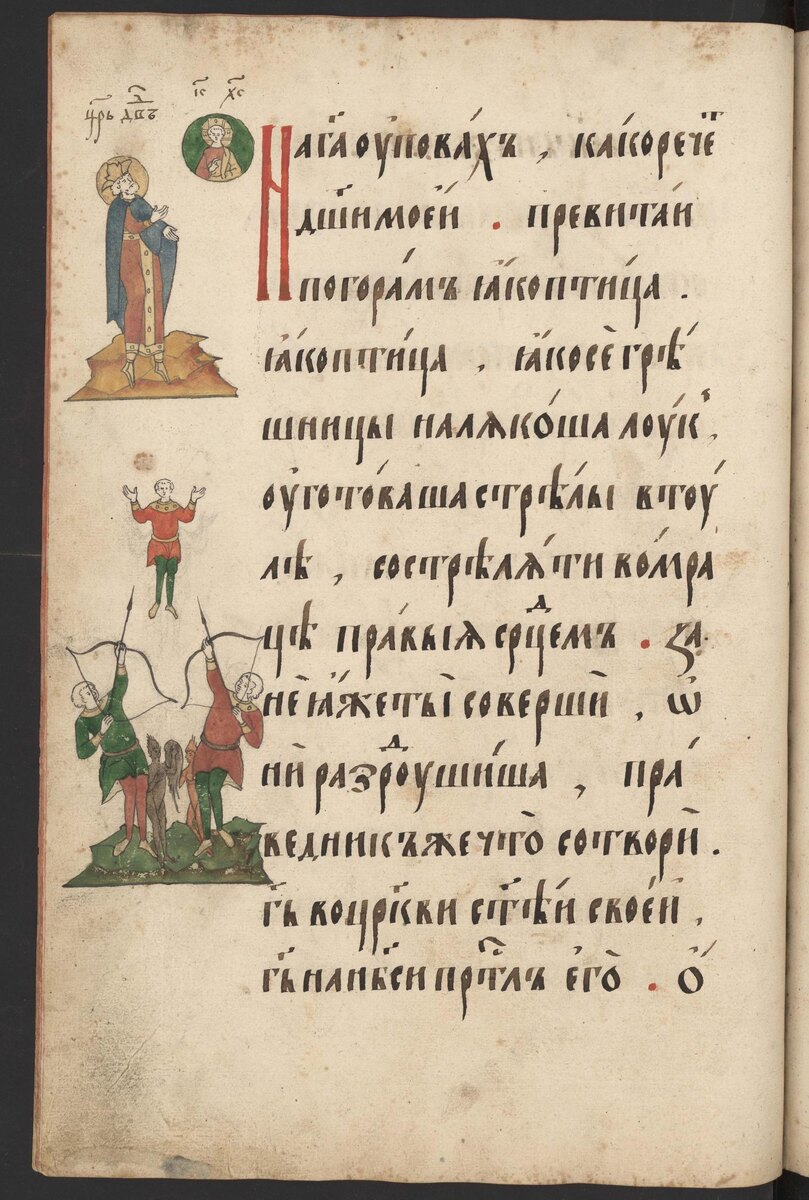 цр҃ь дв҃дъ
іс҃ хс҃
На га҃ оупова́хъ , како рече́те
дш҃и мое́й . превита́й
по гора́мъ ꙗ́ко пти́ца .
ꙗ́ко пти́ца , ꙗ́ко сѐ грѣ́
шницы налѧко́ша лоу́къ ,
оугото́ваша стрѣ́лы в тоу́
лѣ , сострѣлѧ́ти ко мра́
цѣ пра́выѧ срⷣцемъ . за
нѐ ꙗ́же ты̀ совершѝ , ѡ
нѝ раздроуши́ша , пра́
ведникъ же что̀ сотворѝ .
гь҃ во цр҃кви ст҃ѣ́й свое́й ,
гь҃ на нб҃си прⷭ҇тлъ его̀ . О́